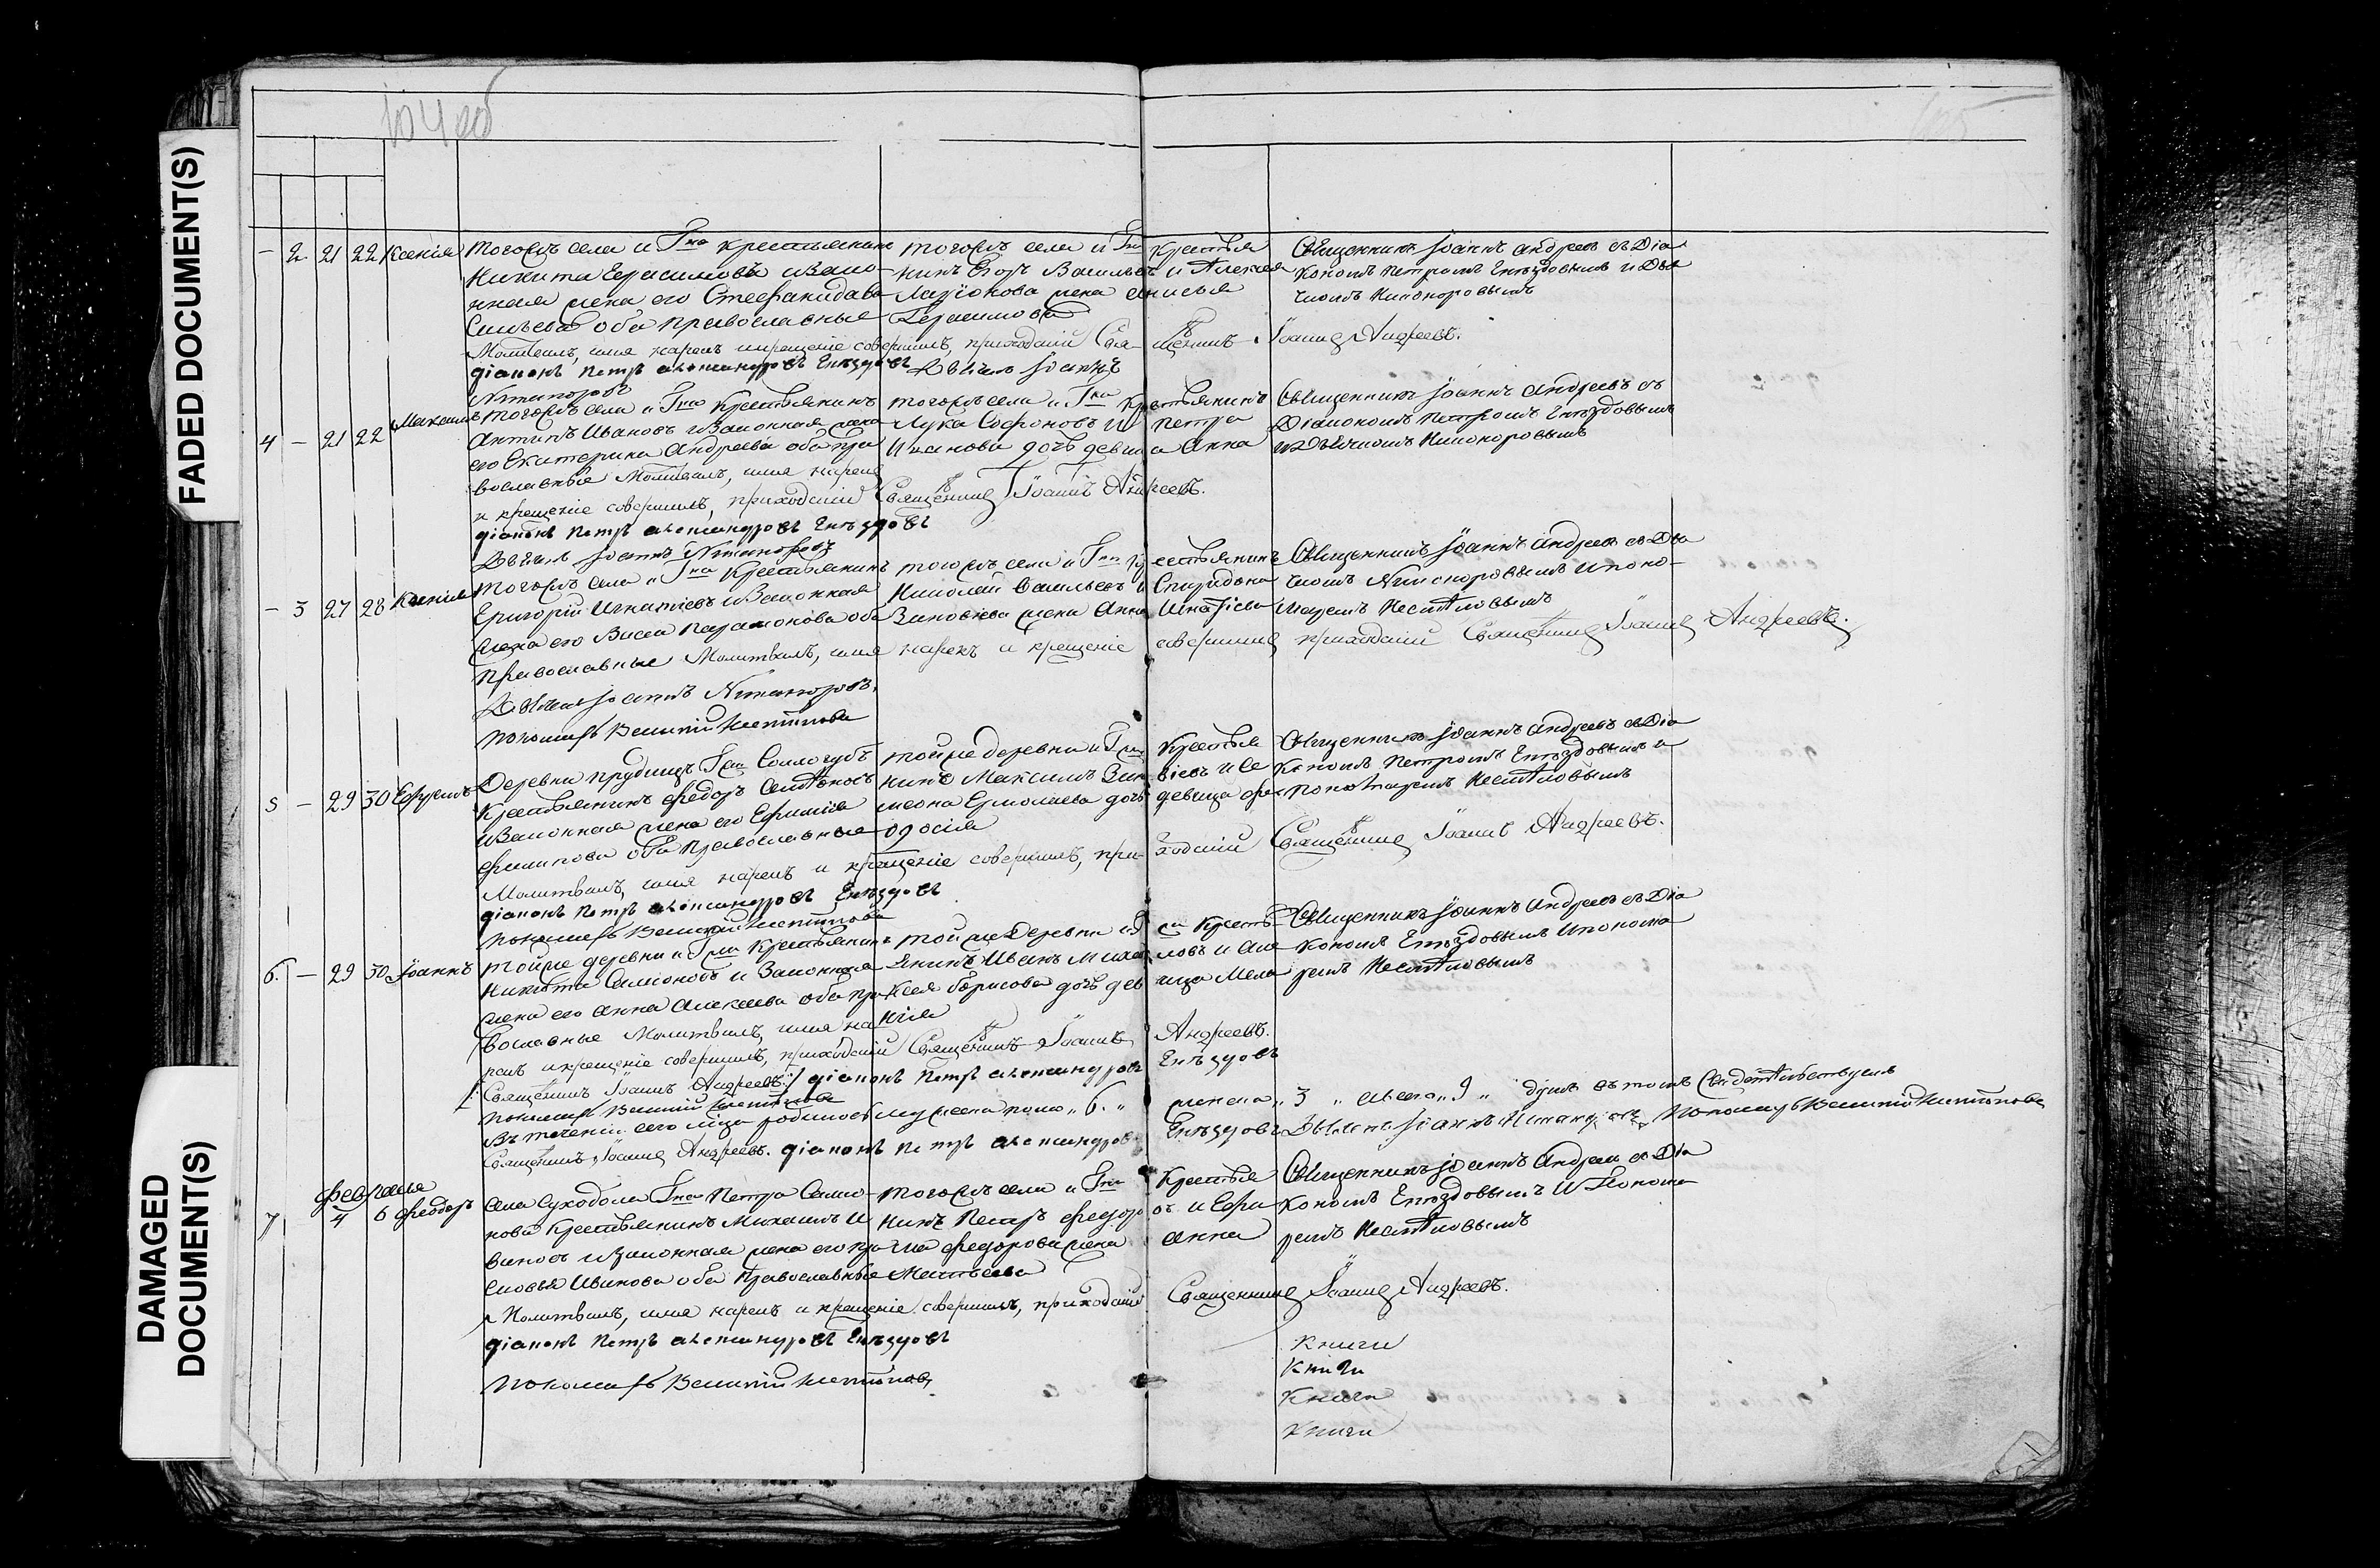 FADED DOCUMENT(S)
DAMAGED
DOCUMENT(S)
104 об
105
– 2 21 22 Ксенія
тогожъ села и Гна крестьянинъ
Никита Герасимовъ и Зако-
нная жена его Стефанида Ва
сильева оба православные
тогожъ села и Гна крестья
нинъ Егоръ Васильевъ и Алексея
Ларіонова жена Анисья
Герасимова
Священникъ Іоаннъ Андреевъ съ Діа
кономъ Петромъ Енѣздовымъ и Дья
чкомъ Никоноровымъ
Молитвилъ, имя нарекъ и крещеніе совершилъ, приходскій Свя- щенникъ Іоаннъ Андреевъ.
діаконъ Петръ Александровъ Енѣздовъ
Дьячекъ Іоаннъ
Никаноровъ
4 – 21 22 Михаилъ
тогожъ села и Гна крестьянинъ
Антипъ Ивановъ и Законная жена
его Екатерина Андреева оба пра
вославные
тогожъ села и Гна крестьянинъ
Лука Софоновъ и Петра
Иванова дочь девица Анна
Священникъ Іоаннъ Андреевъ съ
Діакономъ Петромъ Енѣздовымъ
и Дьячкомъ Никоноровымъ
Молитвилъ, имя нарекъ
и крещеніе совершилъ, приходскій Священникъ Іоаннъ Андреевъ.
діаконъ Петръ Александровъ Енѣздовъ
Дьячекъ Іоаннъ Никаноровъ
– 3 27 28 Ксенія
тогожъ села и Гна Крестьянинъ
Григорій Игнатіевъ и Законная
жена его Васса Парамонова оба
православные
тогожъ села и Гна крестьянинъ
Николай Васильевъ и Спиридона
Зиновіева жена Анна Игнатіева
Священникъ Іоаннъ Андреевъ съ Дья
чкомъ Никоноровымъ и поно-
маремъ
Молитвилъ, имя нарекъ и крещеніе совершилъ приходскій Священникъ Іоаннъ Андреевъ.
Дьячекъ Іоаннъ Никаноровъ.
Пономарь Василій
5 – 29 30 Ефремъ
Деревни Прудищъ Гжи Сологубъ
крестьянинъ Федоръ Семеновъ
и Законная жена его Ефимія
Филипова оба православные
тойже деревни и Гжи крестья
нинъ Максимъ Зиновіевъ и Се
меона Ермолаева дочь девица Фе
одосія
Священникъ Іоаннъ Андреевъ съ Діа
кономъ Петромъ Енѣздовымъ и
пономаремъ
Молитвилъ, имя нарекъ и крещеніе совершилъ, при- ходскій Священникъ Іоаннъ Андреевъ.
діаконъ Петръ Александровъ Енѣздовъ
Пономарь Василій
6. – 29 30 Іоаннъ
тойже деревни и Гжи Крестьянинъ
Никита Самсоновъ и Законная
жена его Анна Алексеева оба пра
вославные
тойже Деревни и Гжи Кресть-
янинъ Иванъ Михайловъ и Але
ксея Борисова дочь девица Мела
нія
Священникъ Іоаннъ Андреевъ съ Діа
кономъ Енѣздовымъ и понома
ремъ
Молитвилъ, имя на
рекъ и крещеніе совершилъ, приходскій Священникъ Іоаннъ Андреевъ.
/: Священникъ Іоаннъ Андреевъ :/ діаконъ Петръ Александровъ Енѣздовъ
Пономарь Василій
Въ теченіи сего м҃ца родилось мужеска пола „6.„ женска „3„ Всего „9„ душъ въ томъ Свидетельствуемъ
Священникъ Іоаннъ Андреевъ. діаконъ Петръ Александровъ Енѣздовъ Дьячекъ Іоаннъ Никаноровъ Пономарь Василій
Февраля
7 4 6 Феодоръ
Села Суходола Гна Петра Само-
нова крестьянинъ Михаилъ И
вановъ и Законная жена его пра
сковья Иванова оба Православные
тогожъ села и Гна Крестья
нинъ Петръ Федоровъ и Ефи
ма Федорова жена Анна
Матвеева
Священникъ Іоаннъ Андреевъ съ Діа
кономъ Енѣздовымъ и Понома
ремъ
Молитвилъ, имя нарекъ и крещеніе совершилъ, приходскій Священникъ Іоаннъ Андреевъ.
діаконъ Петръ Александровъ Енѣздовъ
Пономарь Василій
книги
книги
книги
книги